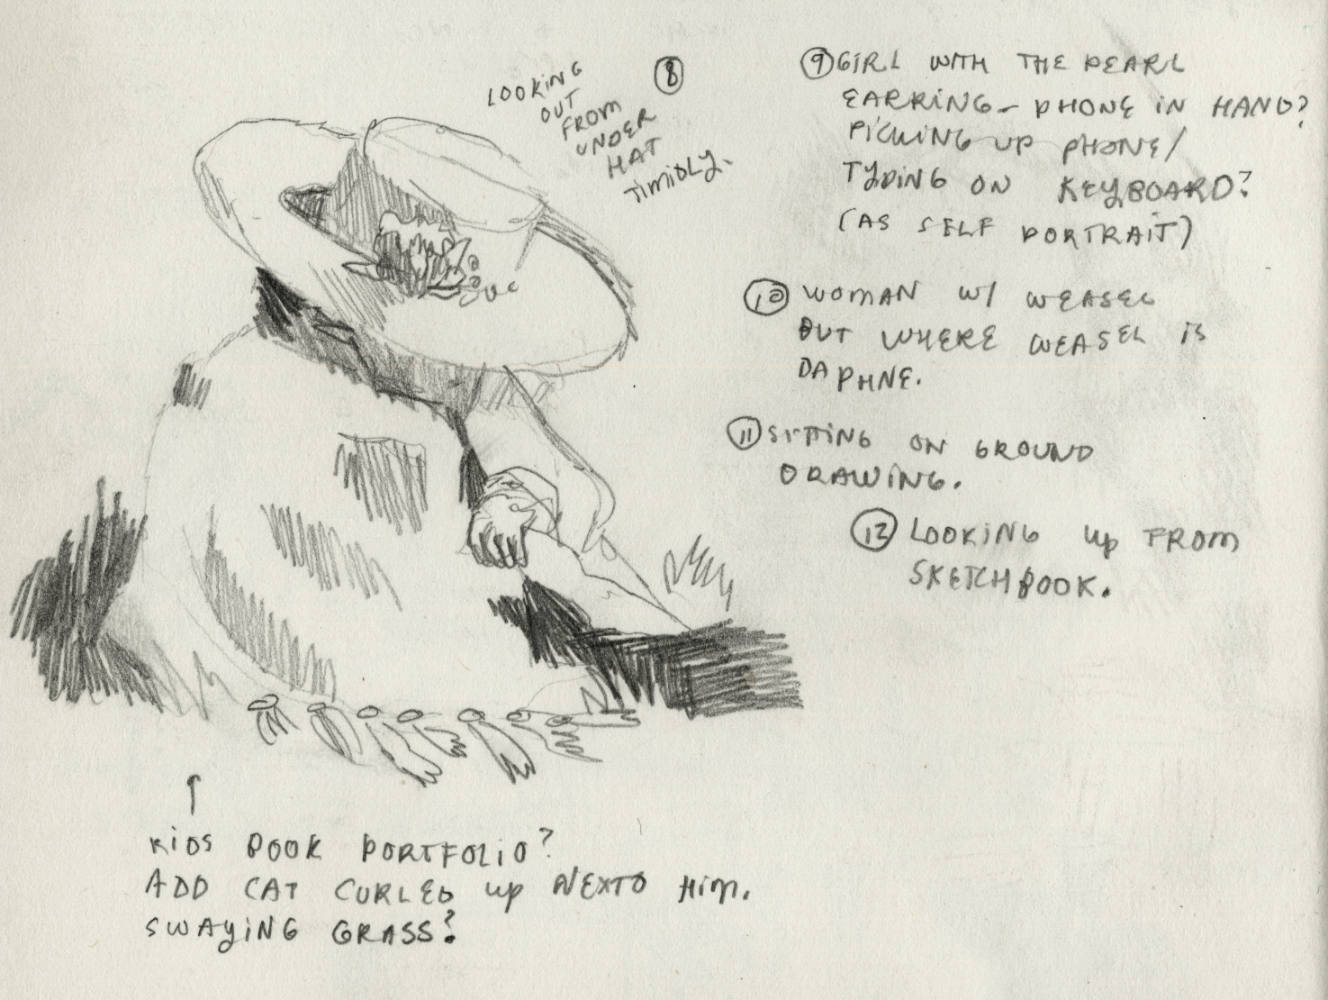 ⑧
LOOKING
OUT
FROM
UNDER
HAT
TIMIDLY.
⑨ GIRL WITH THE PEARL
EARRING - PHONE IN HAND?
PICKING UP PHONE/
TYPING ON KEYBOARD?
(AS SELF PORTRAIT)
⑩ WOMAN W/ WEASEL
BUT WHERE WEASEL IS
DAPHNE.
⑪ SITTING ON GROUND
DRAWING.
⑫ LOOKING UP FROM
SKETCHBOOK.
KIDS BOOK PORTFOLIO?
ADD CAT CURLED UP NEXTO HIM.
SWAYING GRASS?